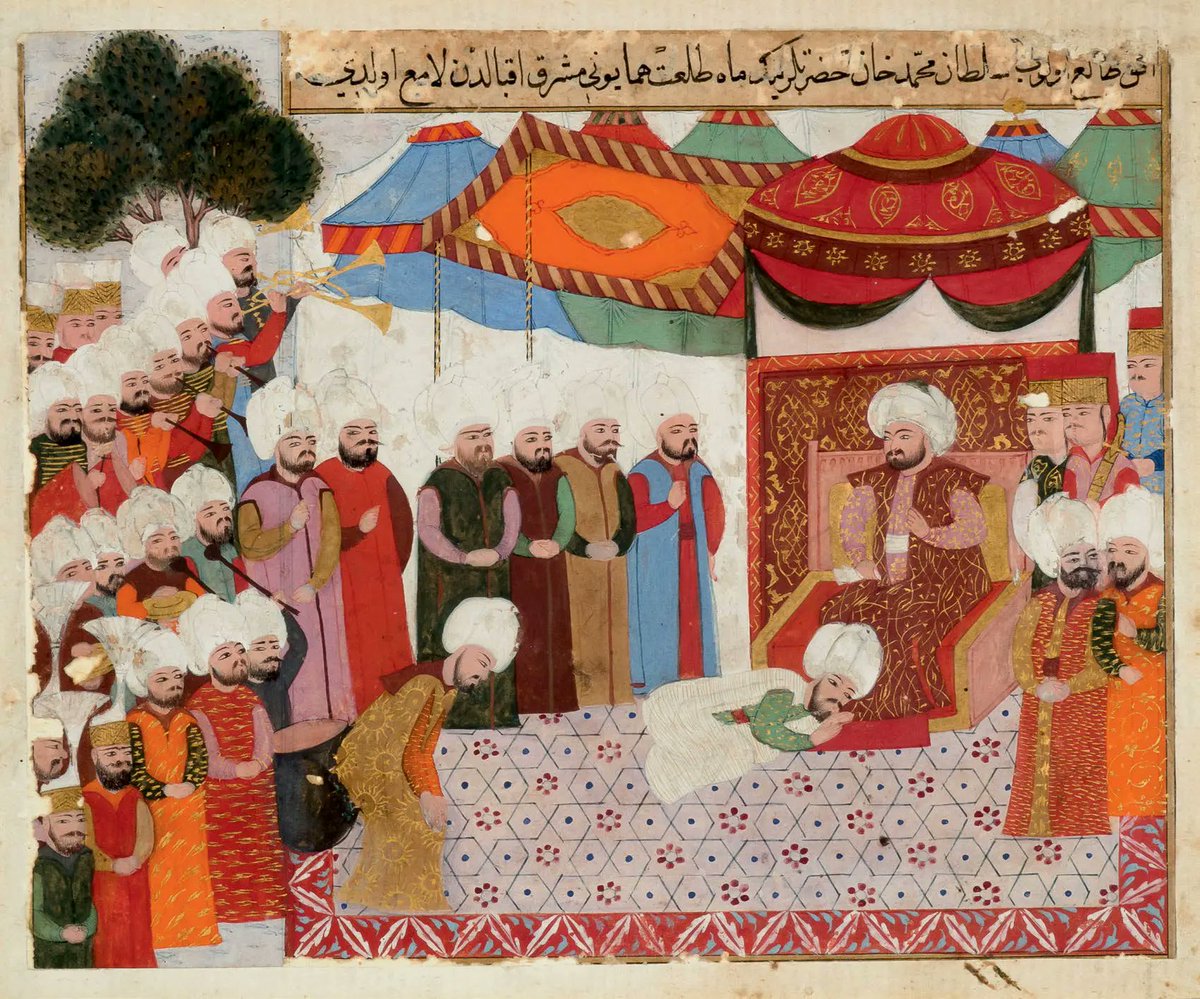 طالع اولوب سلطان محمد خان حضرتلرینك ماه طلعت همایونی مشرق اقبالدن لامع اولدی